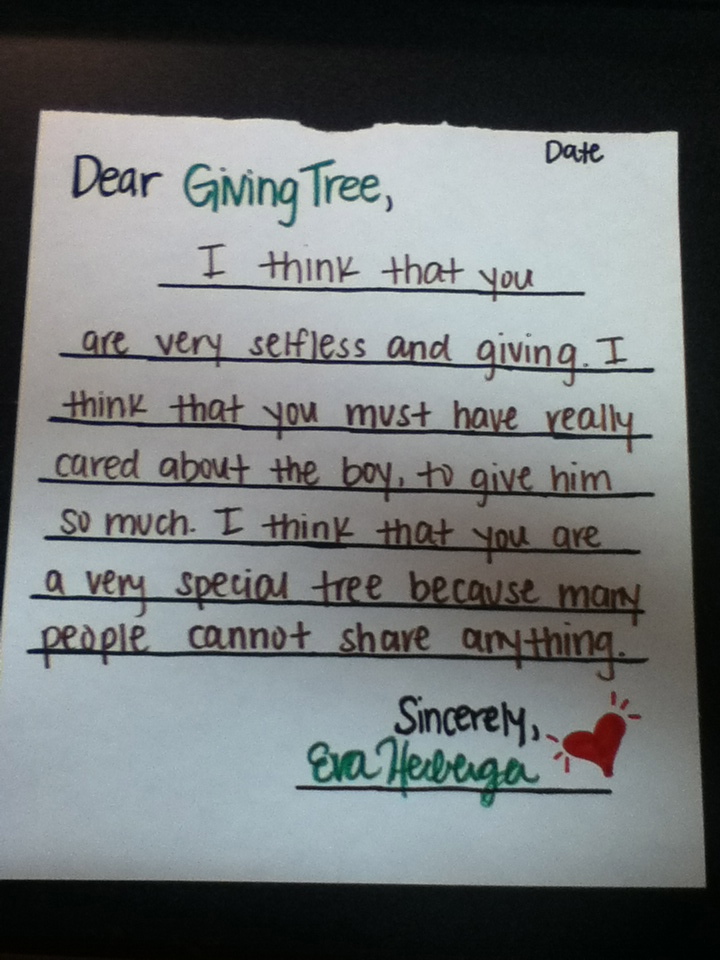 Date
Dear Giving Tree,
I think that you
are very selfless and giving. I
think that you must have really
cared about the boy, to give him
so much. I think that you are
a very special tree because many
people cannot share anything.
Sincerely,
Eva